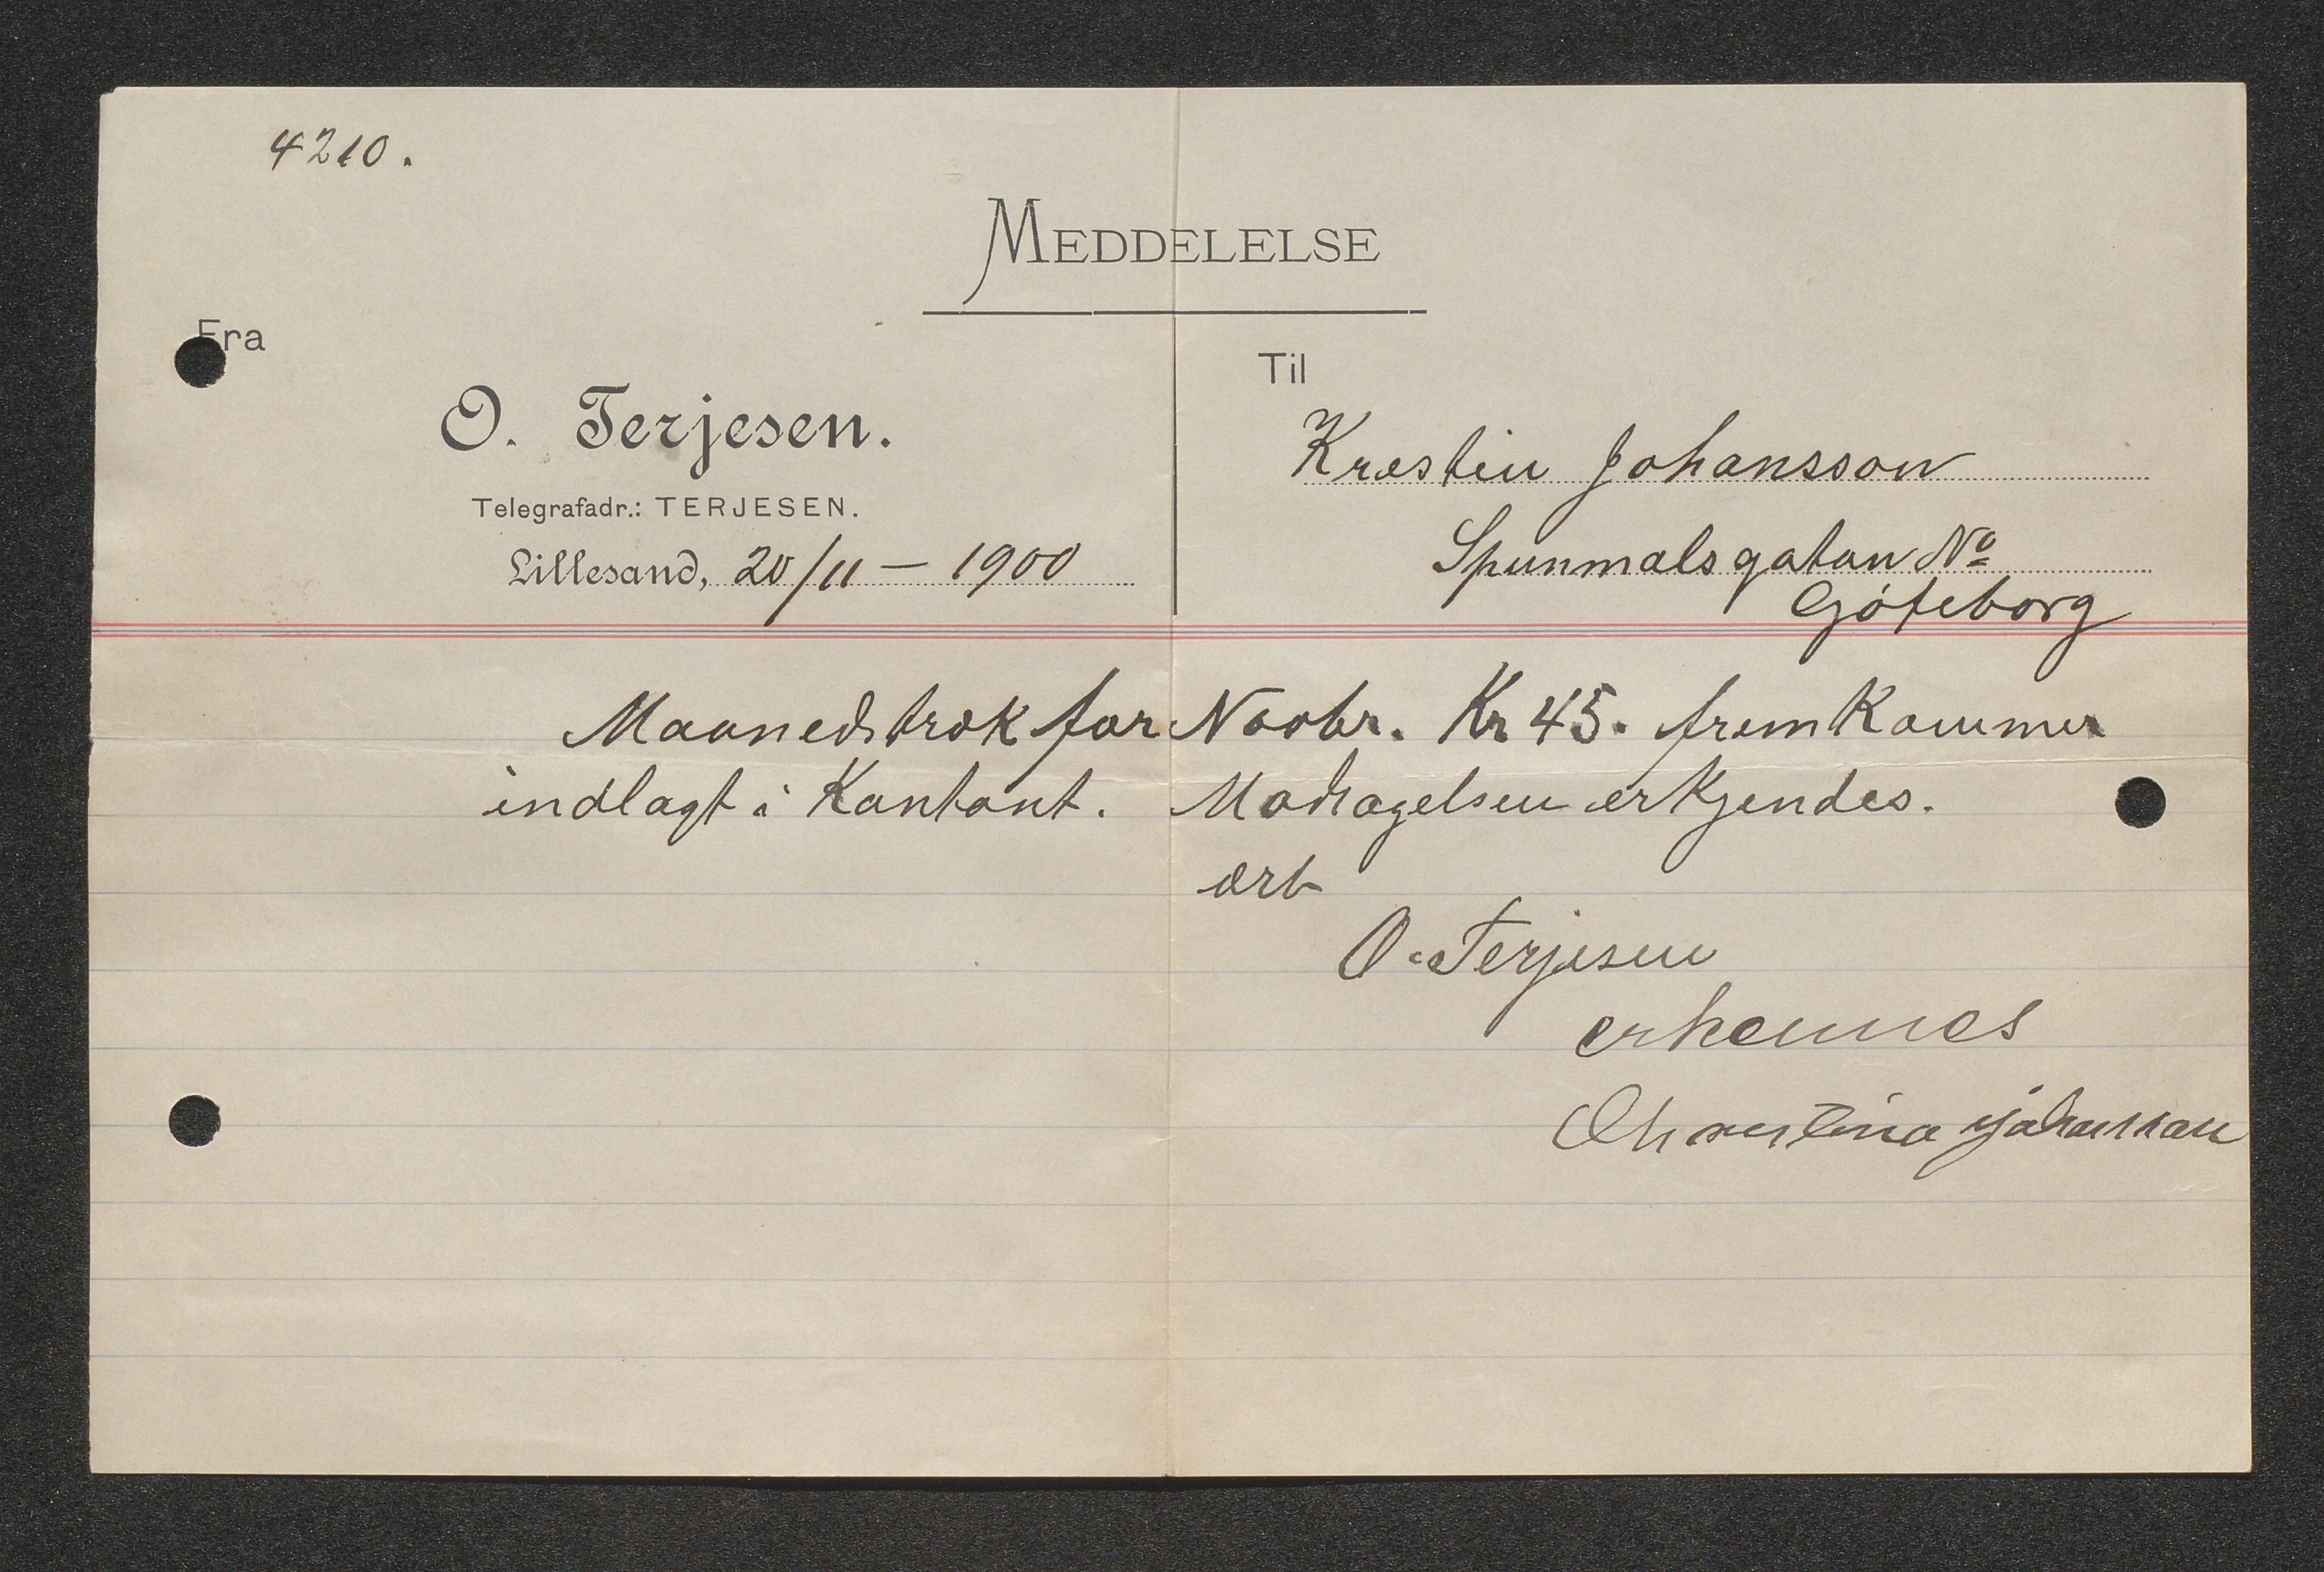 4210.
MEDDELELSE
Fra
O. Terjesen.
Telegrafadr.: TERJESEN.
Lillesand, 20/11 – 1900
Til
Kristin Johansson
Spunmalsgatan No
Göteborg
Maanedstræk for Novbr. Kr 45. fremkommer
indlagt i Kontant. Modtagelsen erkjendes.
ærb
O. Terjesen
erkennes
Christina Johansson